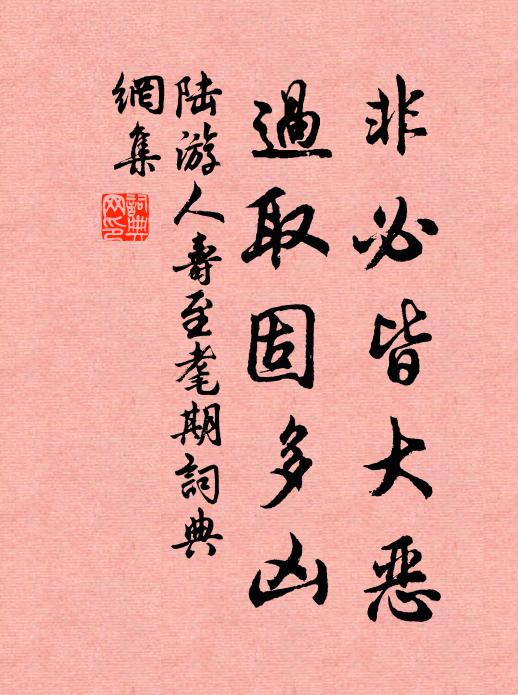 非必皆大恶
過取固多凶
陆游人壽至耄期詞典
網集
詞典
网印